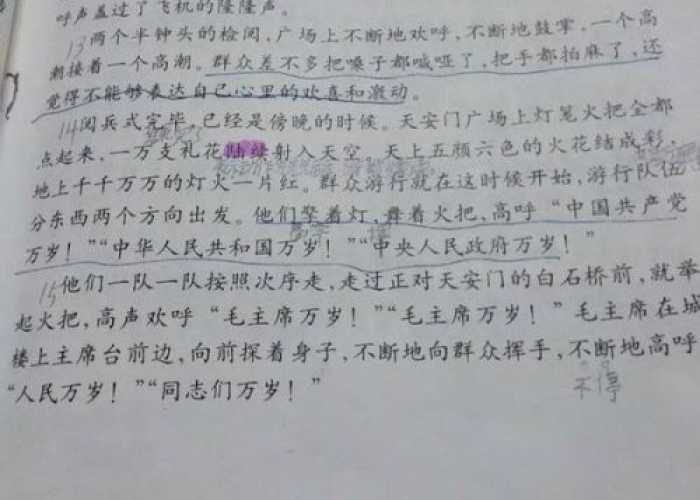 呼声盖过了飞机的隆隆声。
13两个半钟头的检阅，广场上不断地欢呼，不断地鼓掌，一个高
潮接着一个高潮。群众差不多把嗓子都喊哑了，把手都拍麻了，还
觉得不能够表达自己心里的欢喜和激动。
14阅兵式完毕，已经是傍晚的时候。天安门广场上灯笼火把全都
点起来，一万支礼花陆续射入天空。天上五颜六色的火花结成彩，
地上千千万万的灯火一片红。群众游行就在这时候开始，游行队伍
分东西两个方向出发。他们擎着灯，舞着火把，高呼“中国共产党
万岁！”“中华人民共和国万岁！”“中央人民政府万岁！”
高举
15他们一队一队按照次序走，走过正对天安门的白石桥前，就举
起火把，高声欢呼“毛主席万岁！”“毛主席万岁！”毛主席在城
楼上主席台前边，向前探着身子，不断地向群众挥手，不断地高呼
“人民万岁！”“同志们万岁！”
不停